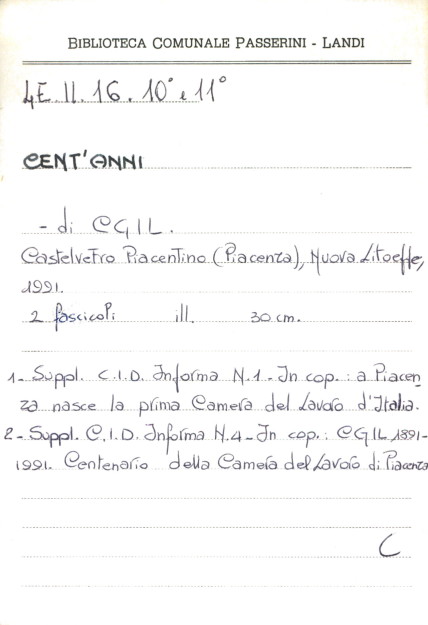 BIBLIOTECA COMUNALE PASSERINI - LANDI
4E.II.16.10° e 11°
CENT'ANNI
- di CGIL.
Castelvetro Piacentino (Piacenza), Nuova Litoeffe,
1991.
2 fascicoli ill. 30 cm.
1 - Suppl. C.I.D. Informa N.1 - In cop.: a Piacen
za nasce la prima Camera del Lavoro d'Italia.
2 - Suppl. C.I.D. Informa N.4 - In cop.: CGIL 1891-
1991. Centenario della Camera del Lavoro di Piacenza
C